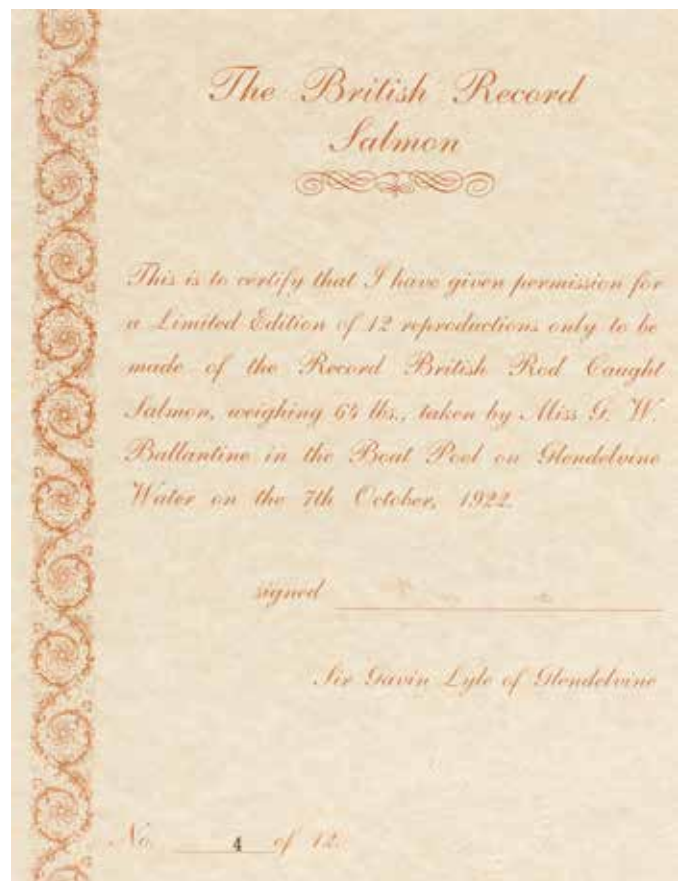 The British Record
Salmon
This is to certify that I have given permission for
a Limited Edition of 12 reproductions only to be
made of the Record British Rod Caught
Salmon, weighing 64 lbs., taken by Miss G. W.
Ballantine in the Boat Pool on Glendelvine
Water on the 7th October, 1922.
signed
Sir Gavin Lyle of Glendelvine
No. 4 of 12.